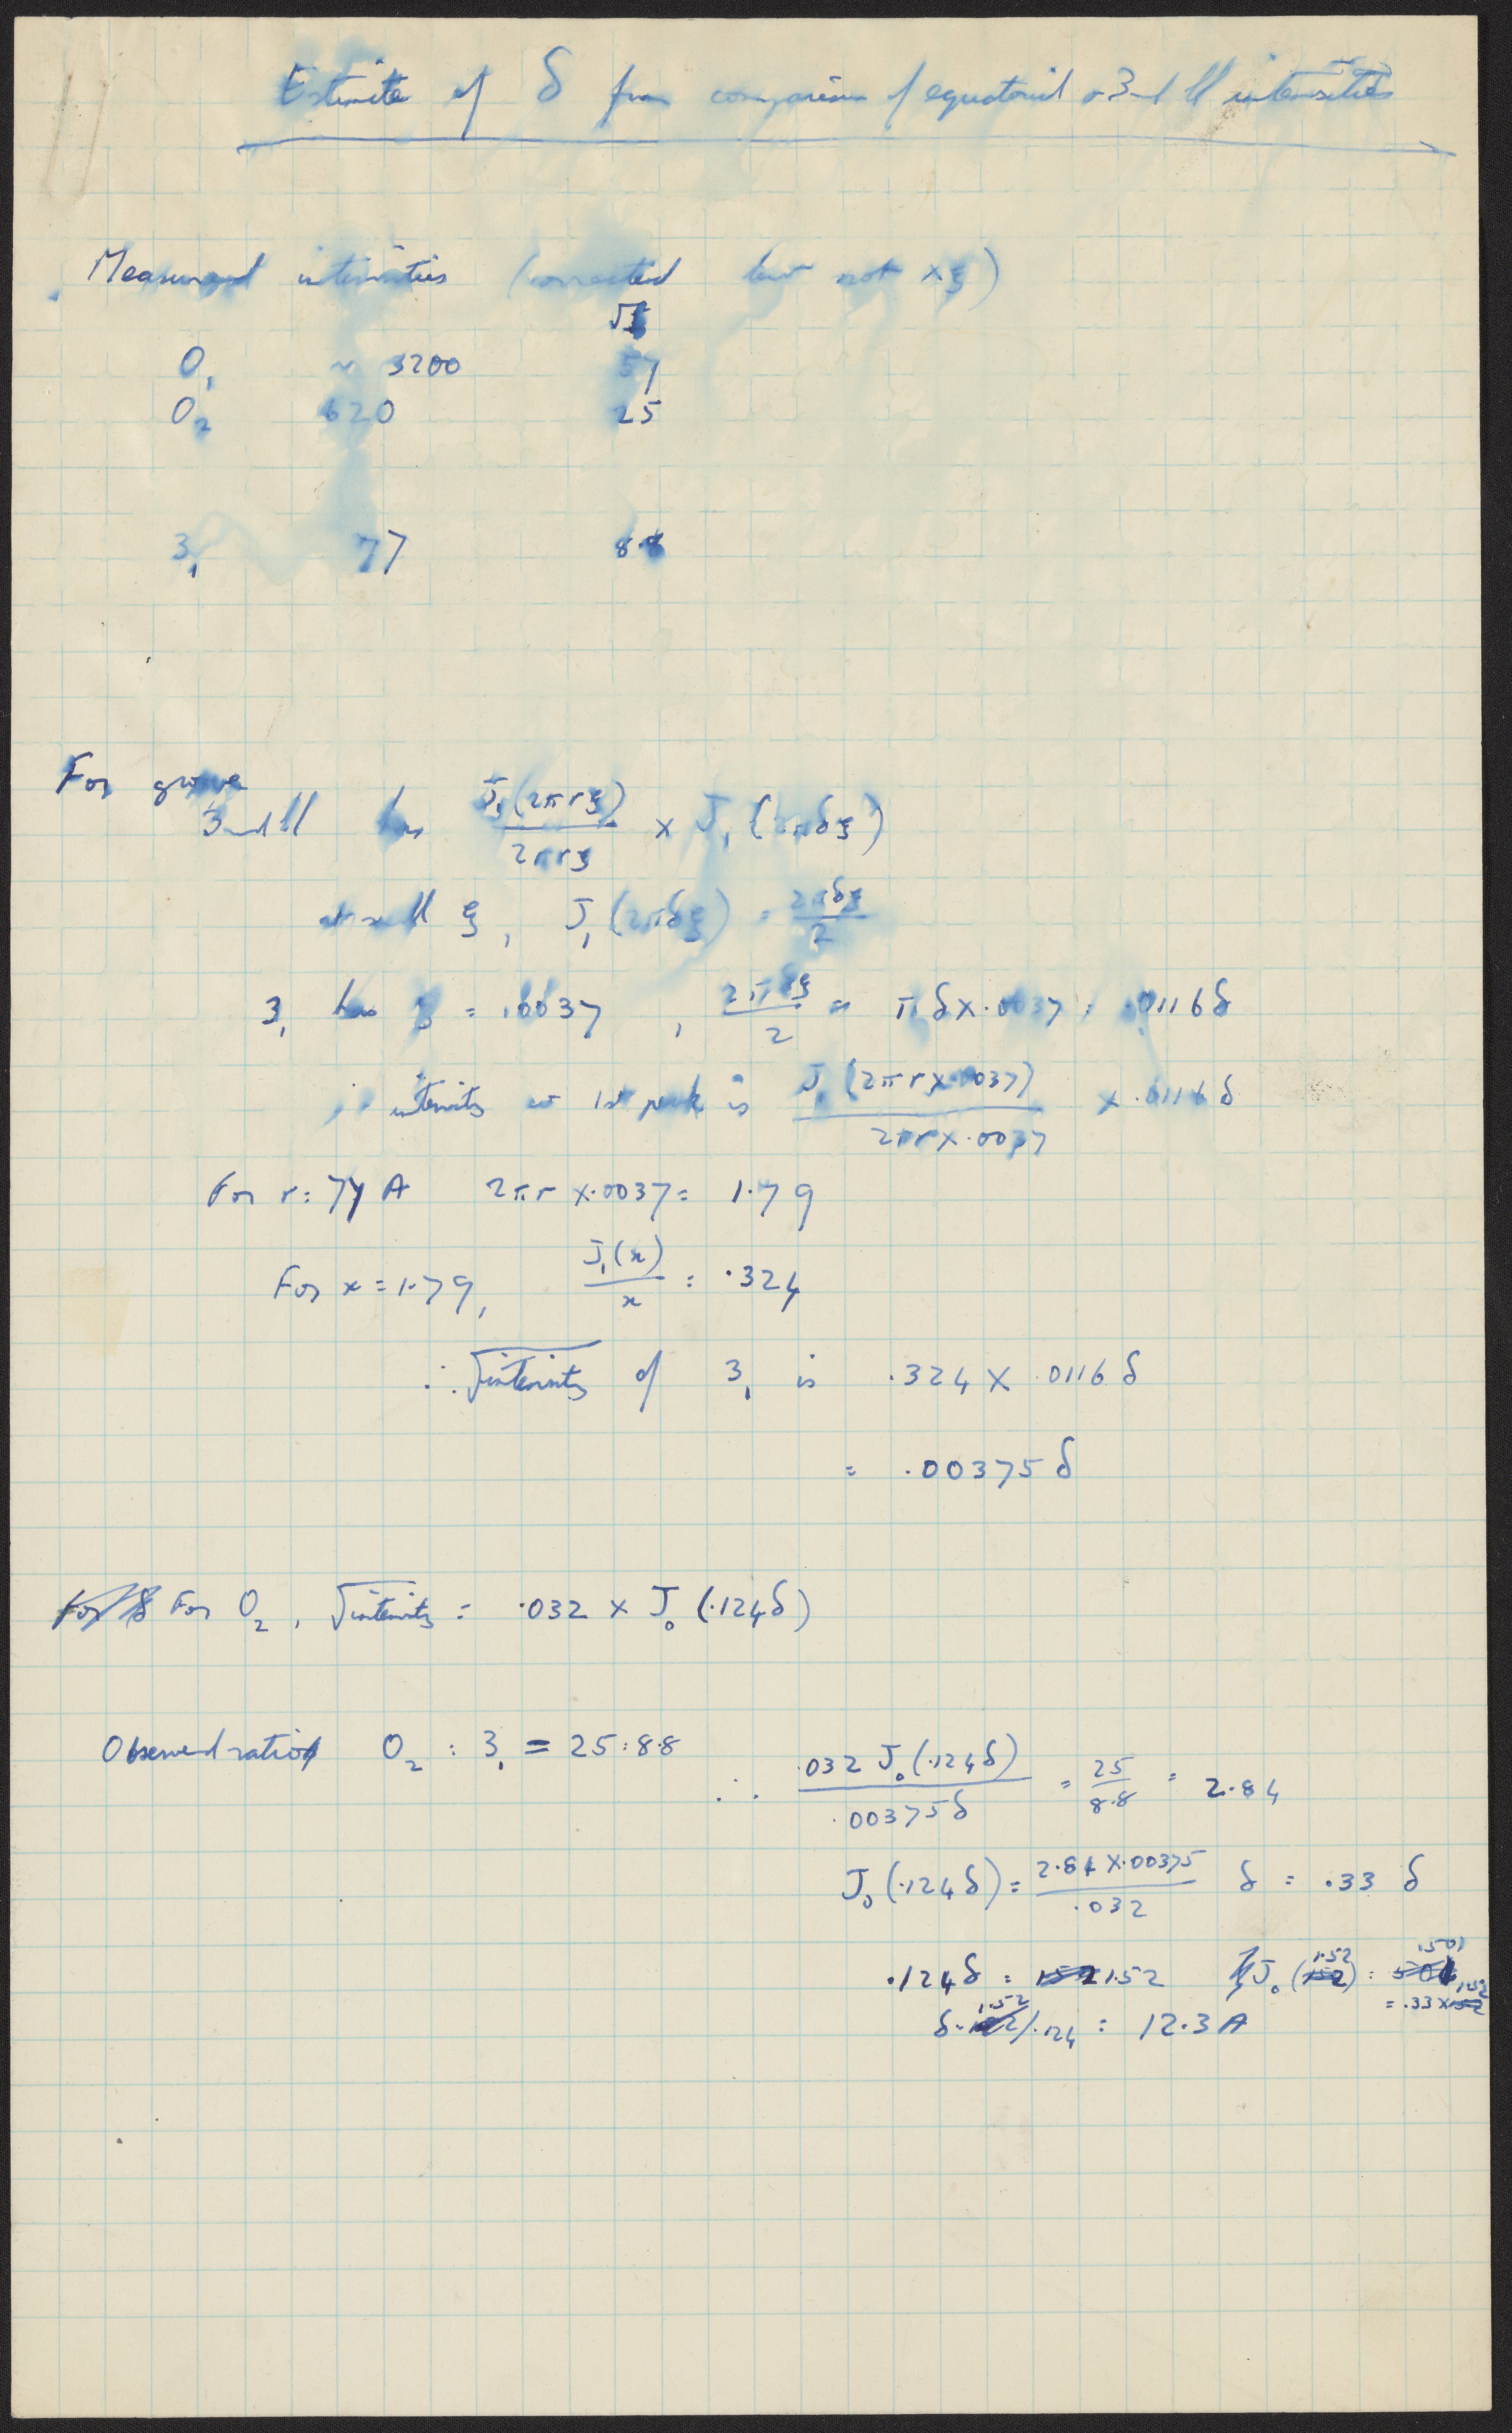 Estimate of δ from comparison of equatorial & 3rd ll intensities
Measured intensities (corrected but not × ξ)
√I
0₁ ~ 3200 57
0₂ 620 25
3₁ 77 8·8
For groove
3rd ll has J₁(2πrξ)/2πrξ × J₁(2πδξ)
at small ξ, J₁(2πδξ) = 2πδξ/2
3₁ has ξ = .0037, 2πδξ/2 = πδ×.0037 = .0116δ
∴ intensity at 1st peak is J₁(2πr×.0037)/2πr×.0037 × .0116δ
For r = 77 A 2πr×.0037 = 1.79
For x = 1.79, J₁(x)/x = .324
∴ √intensity of 3₁ is .324 × .0116 δ
= .00375 δ
For 0₂, √intensity = .032 × J₀(.124δ)
Observed ratio 0₂ : 3₁ = 25 : 8.8
∴ .032 J₀(.124δ)/.00375δ = 25/8.8 = 2.84
J₀(.124δ) = 2.84×.00375/.032 δ = .33 δ
.124δ = 1.52 J₀(1.52) = .501
= .33 × 1.52
δ = 1.52/.124 = 12.3 A